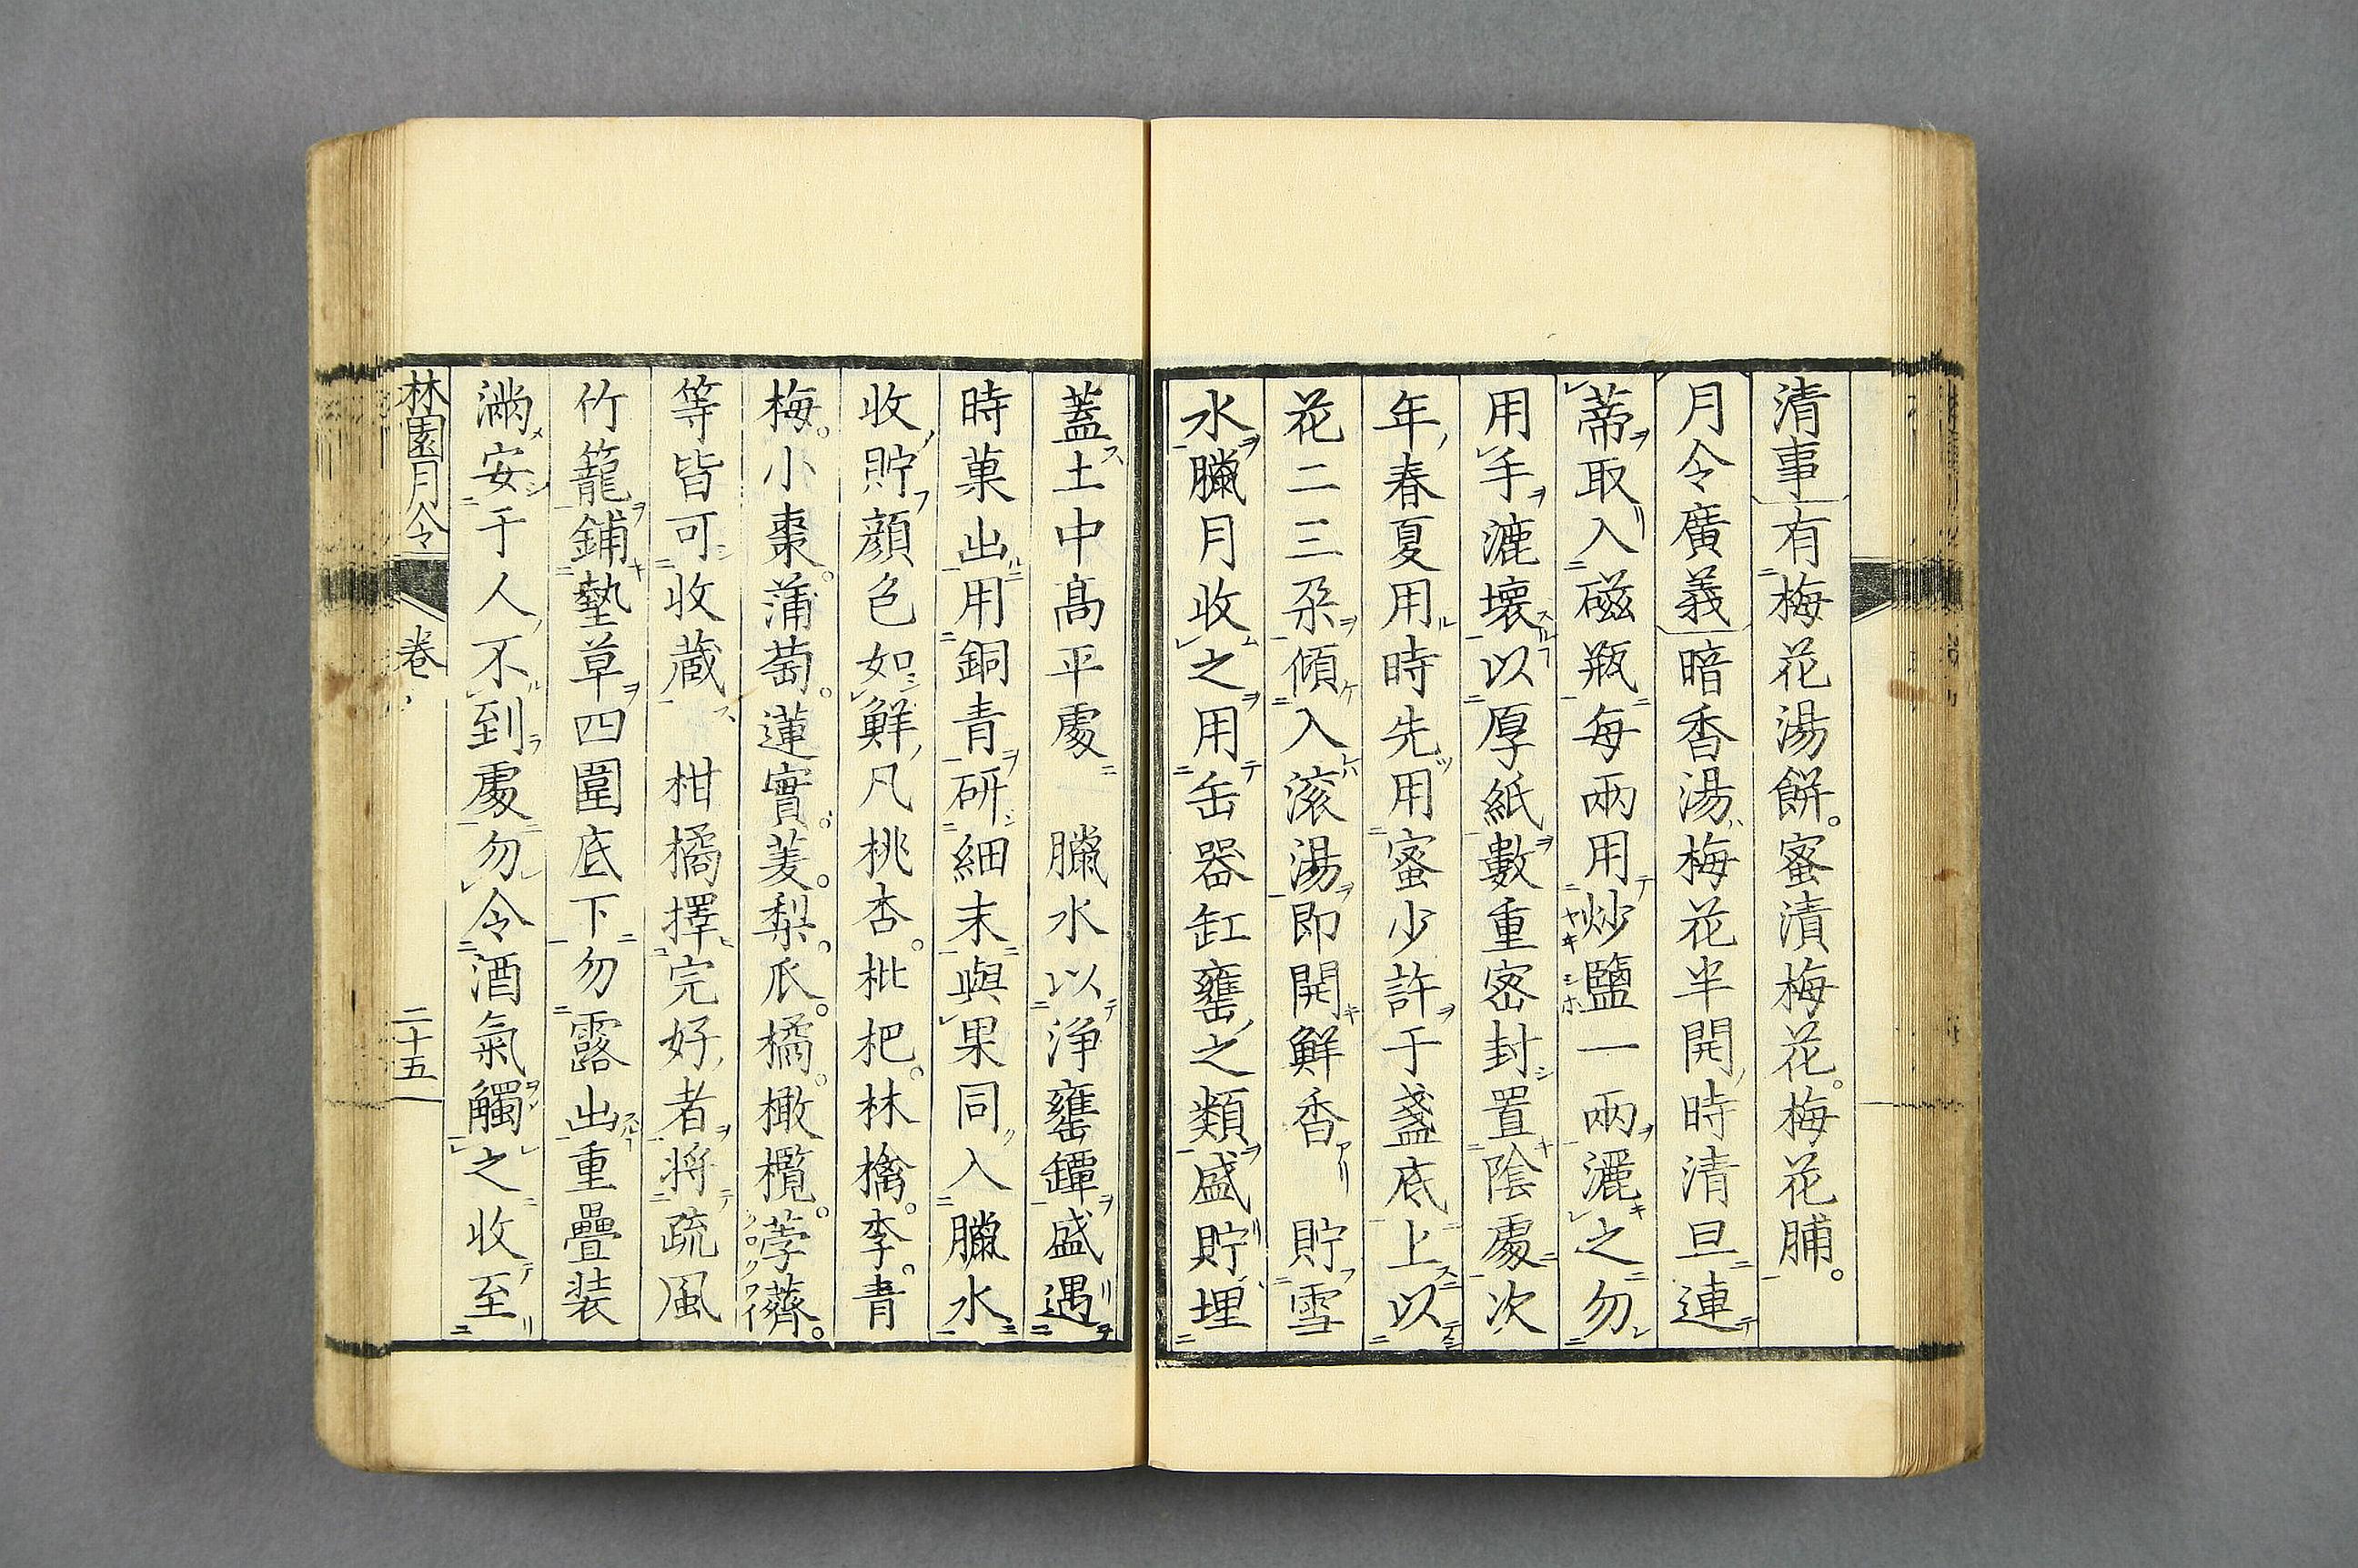 清事有梅花湯餅。蜜漬梅花。梅花脯。
月令廣義暗香湯梅花半開時清旦連
蒂取入磁瓶每兩用炒鹽一兩灑之勿
用手漉壞以厚紙數重密封置陰處次
年春夏用時先用蜜少許于盞底上以
花二三朶傾入滚湯即開鮮香 貯雪
水臘月收之用缶器缸罋之類盛貯埋
蓋土中髙平處 臘水以淨罋罈盛遇
時菓出用銅青研細末與果同入臘水
收貯顔色如鮮凡桃杏。枇杷。林檎。李。青
梅。小棗。蒲萄。蓮實。菱。梨。瓜。橘。橄欖。荸薺。
等皆可收蔵 柑橘擇完好者將疏風
竹籠鋪墊草四圍底下勿露出重疊装
滿安于人不到處勿令酒氣觸之收至
林園月令
卷
二十五